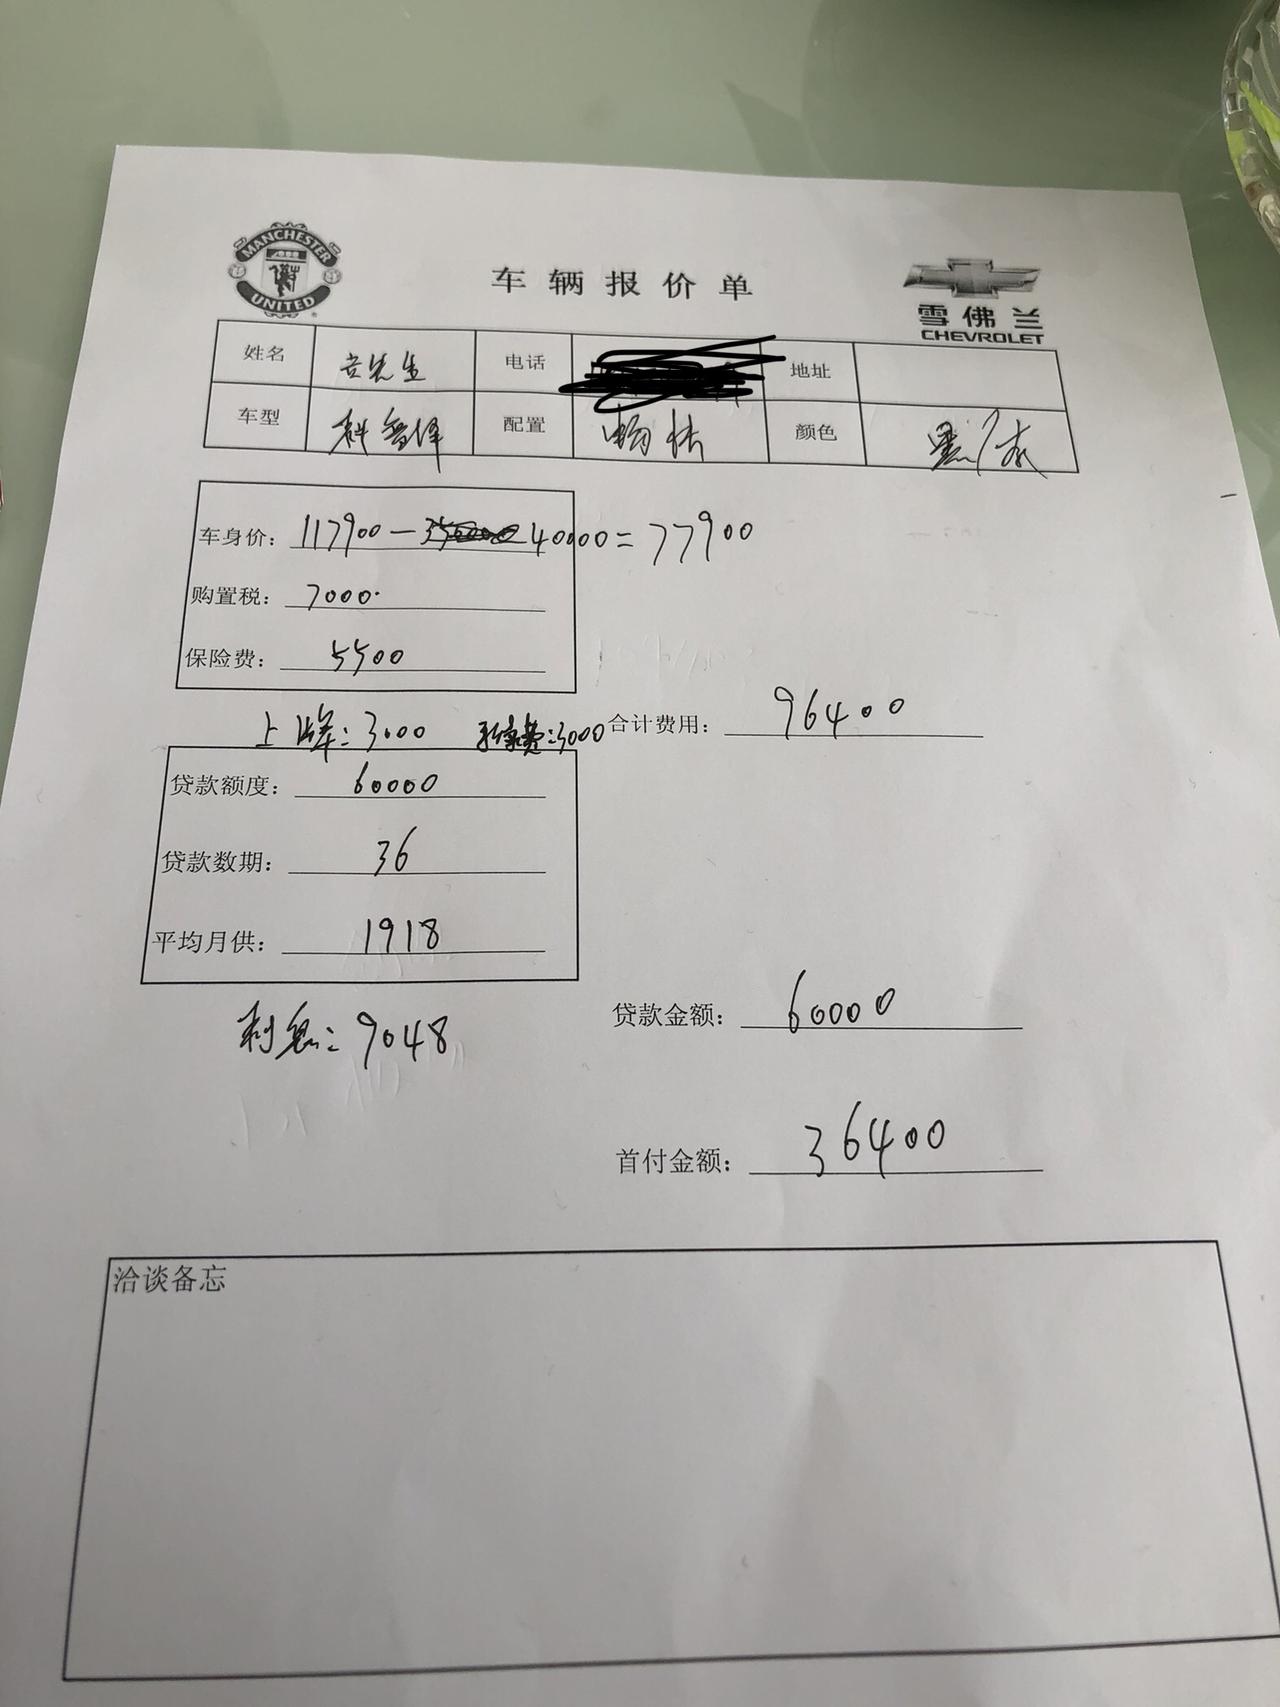 MANCHESTER
UNITED
车辆报价单
雪佛兰
CHEVROLET
姓名 先生 电话 地址
车型 科鲁泽 配置 畅快 颜色 黑/灰
车身价: 117900 - 40000 = 77900
购置税: 7000.
保险费: 5500
上牌: 3000 手续费: 3000 合计费用: 96400
贷款额度: 60000
贷款数期: 36
平均月供: 1918
利息: 9048
贷款金额: 60000
首付金额: 36400
洽谈备忘